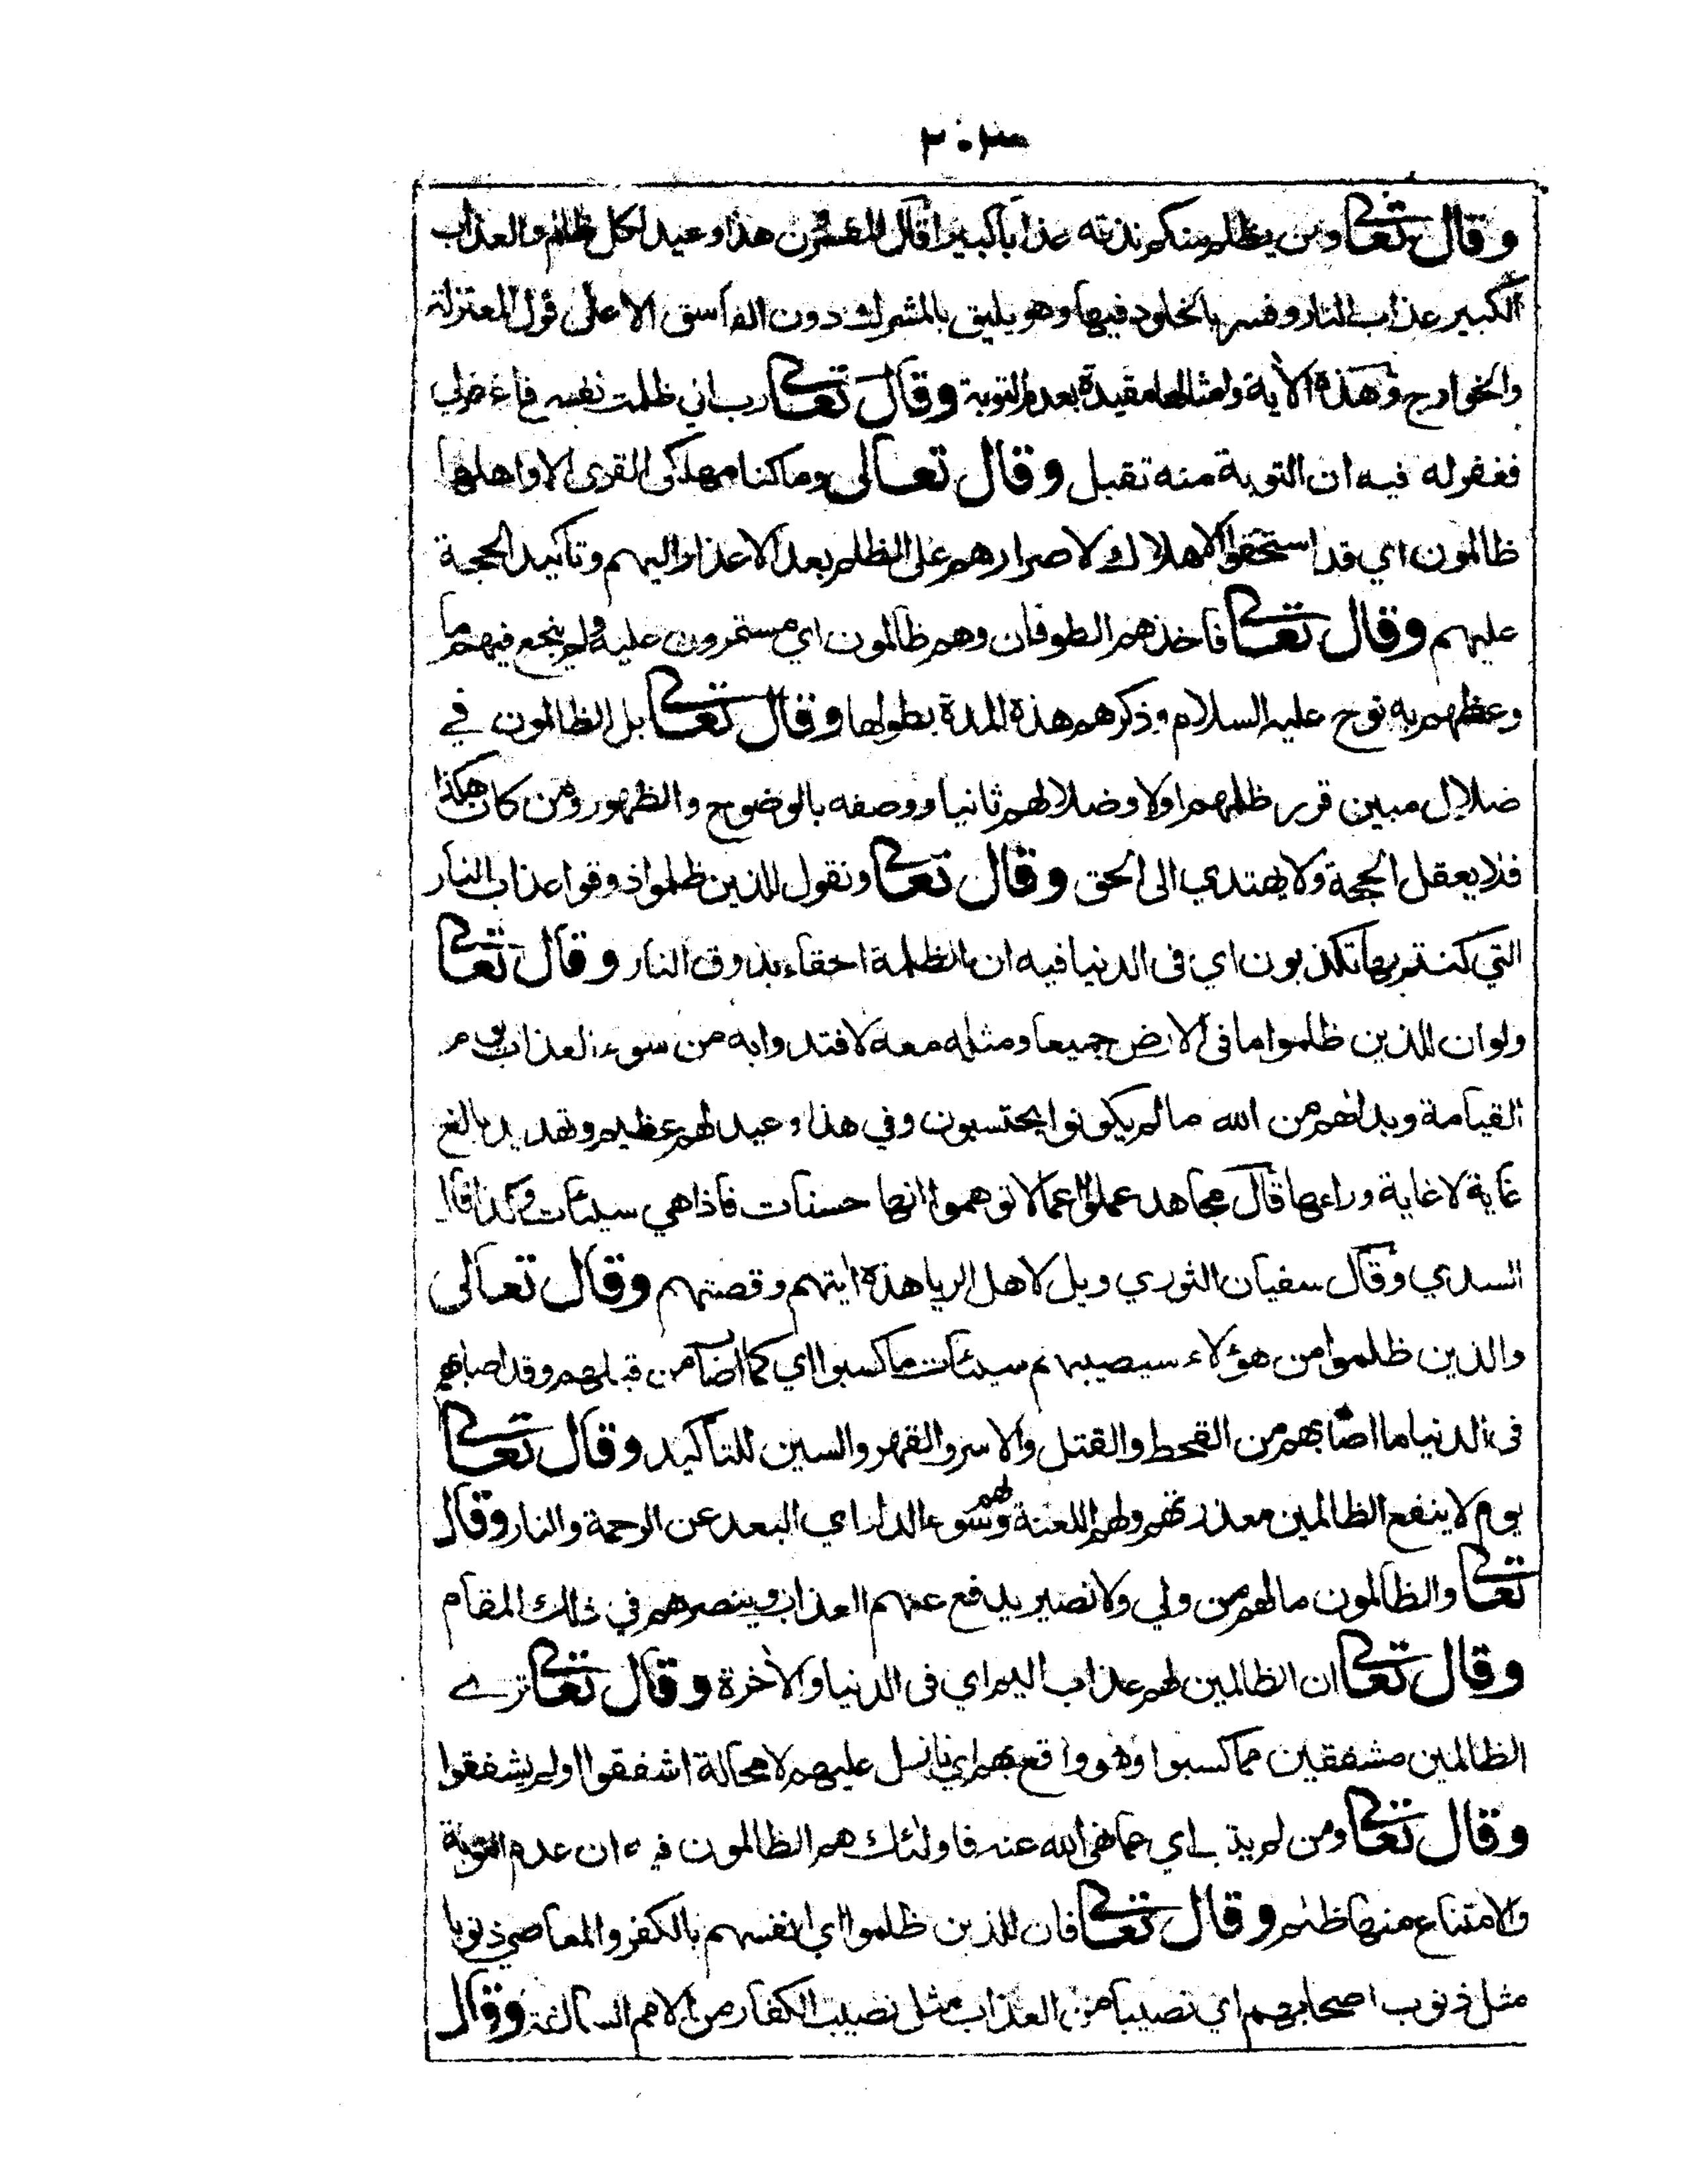 ٢٠٣
وقال تعالى ومن يظلم منكم نذقه عذابا كبيرا قال المفسرون هذا وعيد لكل ظالم والعذاب
الكبير عذاب النار وفسر بالخلود فيها وهو يليق بالمشرك دون الفاسق الا على قول المعتزلة
والخوارج وهذه الأية وامثالها مقيدة بعدم التوبة وقال تعالى رب اني ظلمت نفسي فاغفرلي
فغفر له فيه ان التوبة منه تقبل وقال تعالى وما كنا مهلكى القرى الا واهلها
ظالمون اي قد استحقوا الاهلاك لاصرارهم على الظلم بعد الاعذار اليهم وتاكيد الحجة
عليهم وقال تعالى فاخذهم الطوفان وهم ظالمون اي مستمرون عليه ولم ينجع فيهم ما
وعظهم به نوح عليه السلام وذكرهم هذه المدة بطولها وقال تعالى بل الظالمون في
ضلال مبين قرر ظلمهم اولا وضلالهم ثانيا ووصفه بالوضوح والظهور ومن كان هكذا
فلا يعقل الحجة ولا يهتدي الى الحق وقال تعالى ونقول للذين ظلموا ذوقوا عذاب النار
التي كنتم بها تكذبون اي فى الدنيا فيه ان الظلمة احقاء بذوق النار وقال تعالى
ولو ان للذين ظلموا ما فى الارض جميعا ومثله معه لافتدوا به من سوء العذاب يوم
القيامة وبدا لهم من الله ما لم يكونوا يحتسبون وفي هذا وعيد لهم عظيم وتهديد بالغ
غاية لا غاية وراءها قال مجاهد عملوا اعمالا توهموا انها حسنات فاذا هي سيئات وكذا قال
السدي وقال سفيان الثوري ويل لاهل الريا هذه ايتهم وقصتهم وقال تعالى
والذين ظلموا من هؤلاء سيصيبهم سيئات ما كسبوا اي كما اصاب من قبلهم وقد اصابهم
فى الدنيا ما اصابهم من القحط والقتل والاسر والقهر والسين للتاكيد وقال تعالى
يوم لا ينفع الظالمين معذرتهم ولهم اللعنة ولهم سوء الدار اي البعد عن الرحمة والنار وقال
تعالى والظالمون ما لهم من ولي ولا نصير يدفع عنهم العذاب وينصرهم في ذلك المقام
وقال تعالى ان الظالمين لهم عذاب اليم اي فى الدنيا والأخرة وقال تعالى ترے
الظالمين مشفقين مما كسبوا وهو واقع بهم اي نازل عليهم لا محالة اشفقوا او لم يشفقوا
وقال تعالى ومن لم يتب اي عما نهى الله عنه فاولئك هم الظالمون فيه ان عدم التوبة
والامتناع منها ظلم وقال تعالى فان للذين ظلموا اي انفسهم بالكفر والمعاصي ذنوبا
مثل ذنوب اصحابهم اي نصيبا من العذاب مثل نصيب الكفار من الامم السالفة وقال